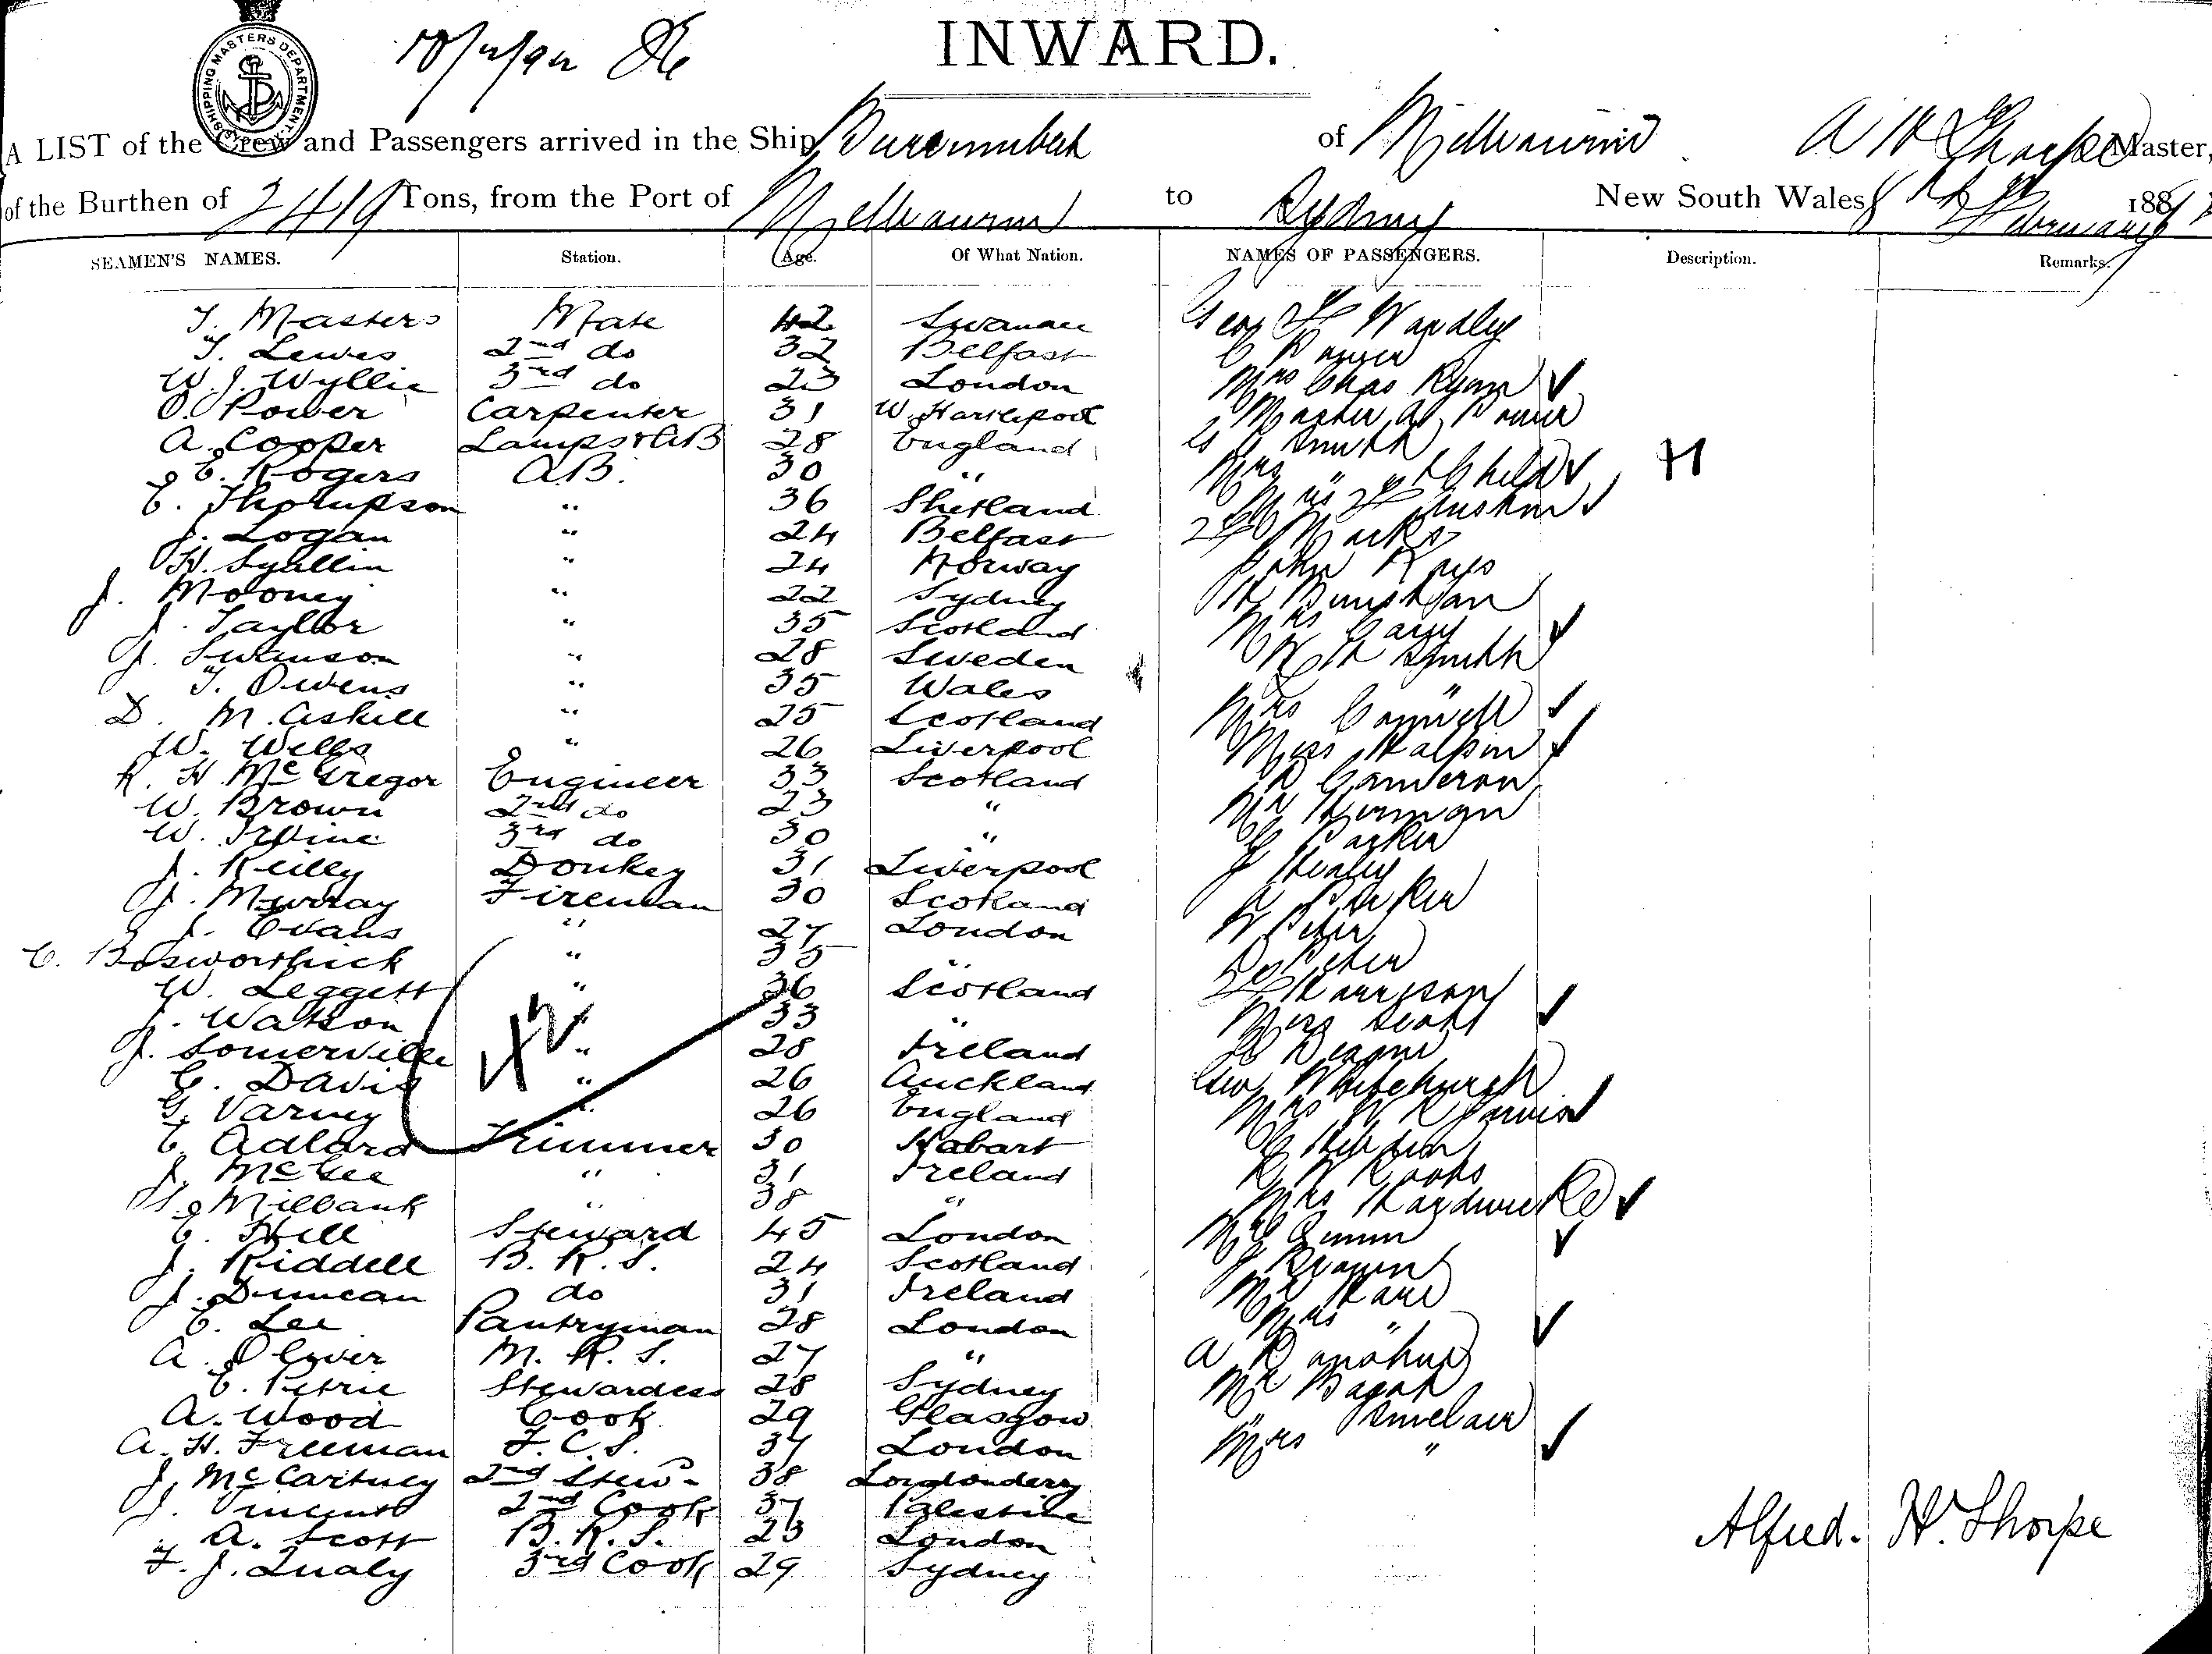 INWARD.
SHIPPING MASTERS DEPARTMENT. SYDNEY
A LIST of the Crew and Passengers arrived in the Ship Burrumbeet of Melbourne A H Thorpe Master,
of the Burthen of 2419 Tons, from the Port of Melbourne to Sydney New South Wales 8th February 188
SEAMEN'S NAMES. Station. Age. Of What Nation. NAMES OF PASSENGERS. Description. Remarks.
T. Masters Mate 42 Swansea Wardley
T. Lewes 2nd do 32 Belfast
W. J. Wyllie 3rd do 23 London Mrs Chas Ryan
O. Power Carpenter 31 W. Hartlepool Master
A. Cooper Lamps & AB 28 England Smith
E. Rogers A.B. 30 " Mrs " & Child H
E. Thompson " 36 Shetland
J. Logan " 24 Belfast Marks
H. Syallin " 24 Norway John Kays
J. Mooney " 22 Sydney
J. Taylor " 35 Scotland Mrs Cary
J. Swanson " 28 Sweden Smith
T. Owens " 35 Wales "
D. M. Askill " 25 Scotland Mrs
W. Wells " 26 Liverpool Miss Halpin
R. H. McGregor Engineer 33 Scotland Cameron
W. Brown 2nd do 23 " Mr Herman
W. Irvine 3rd do 30 " Parker
J. Reilly Donkey 31 Liverpool J Healey
J. Murray Fireman 30 Scotland
J. Evans " 27 London W Peter
C. Bosworthick " 35 " Peter
W. Leggett " 36 Scotland Harrison
J. Watson " 33 " Miss Scott
J. Somerville " 28 Ireland Deane
E. Davis " 26 Auckland Geo Whitchurch
G. Varney " 26 England Mrs W R Jarvis
E. Adlard Trimmer 30 Hobart
J. McGee " 31 Ireland
S. Milbank " 38 " Mrs Hardwicke
E. Hill Steward 45 London
J. Riddell B. R. S. 24 Scotland
J. Duncan do 31 Ireland Mr Kane
E. Lee Pantryman 28 London Mrs "
A. Oliver M. R. S. 27 " A
E. Petrie Stewardess 28 Sydney Mr
A. Wood Cook 29 Glasgow " Sinclair
A. H. Freeman F. C. S. 37 London Mrs "
J. McCartney 2nd Stewd 38 Londonderry
J. Vincent 2nd Cook 37 Palestine
A. Scott B. R. S. 23 London
F. J. Qualy 3rd Cook 29 Sydney
42
Alfred. H. Thorpe